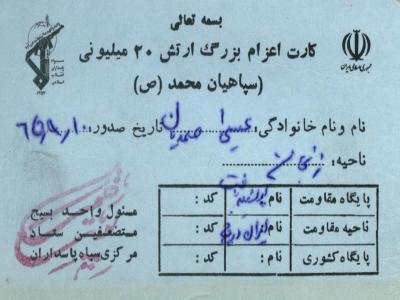 بسمه تعالی
کارت اعزام بزرگ ارتش ۲۰ میلیونی
(سپاهیان محمد (ص
جمهوری اسلامی ایران
نام و نام خانوادگی: عیسی صمدیان تاریخ صدور:
ناحیه: زنجان
پایگاه مقاومت نام: کد:
ناحیه مقاومت نام: کد:
پایگاه کشوری : :
مسئول واحد بسیج
مستضعفین ستاد
مرکزی سپاه پاسداران